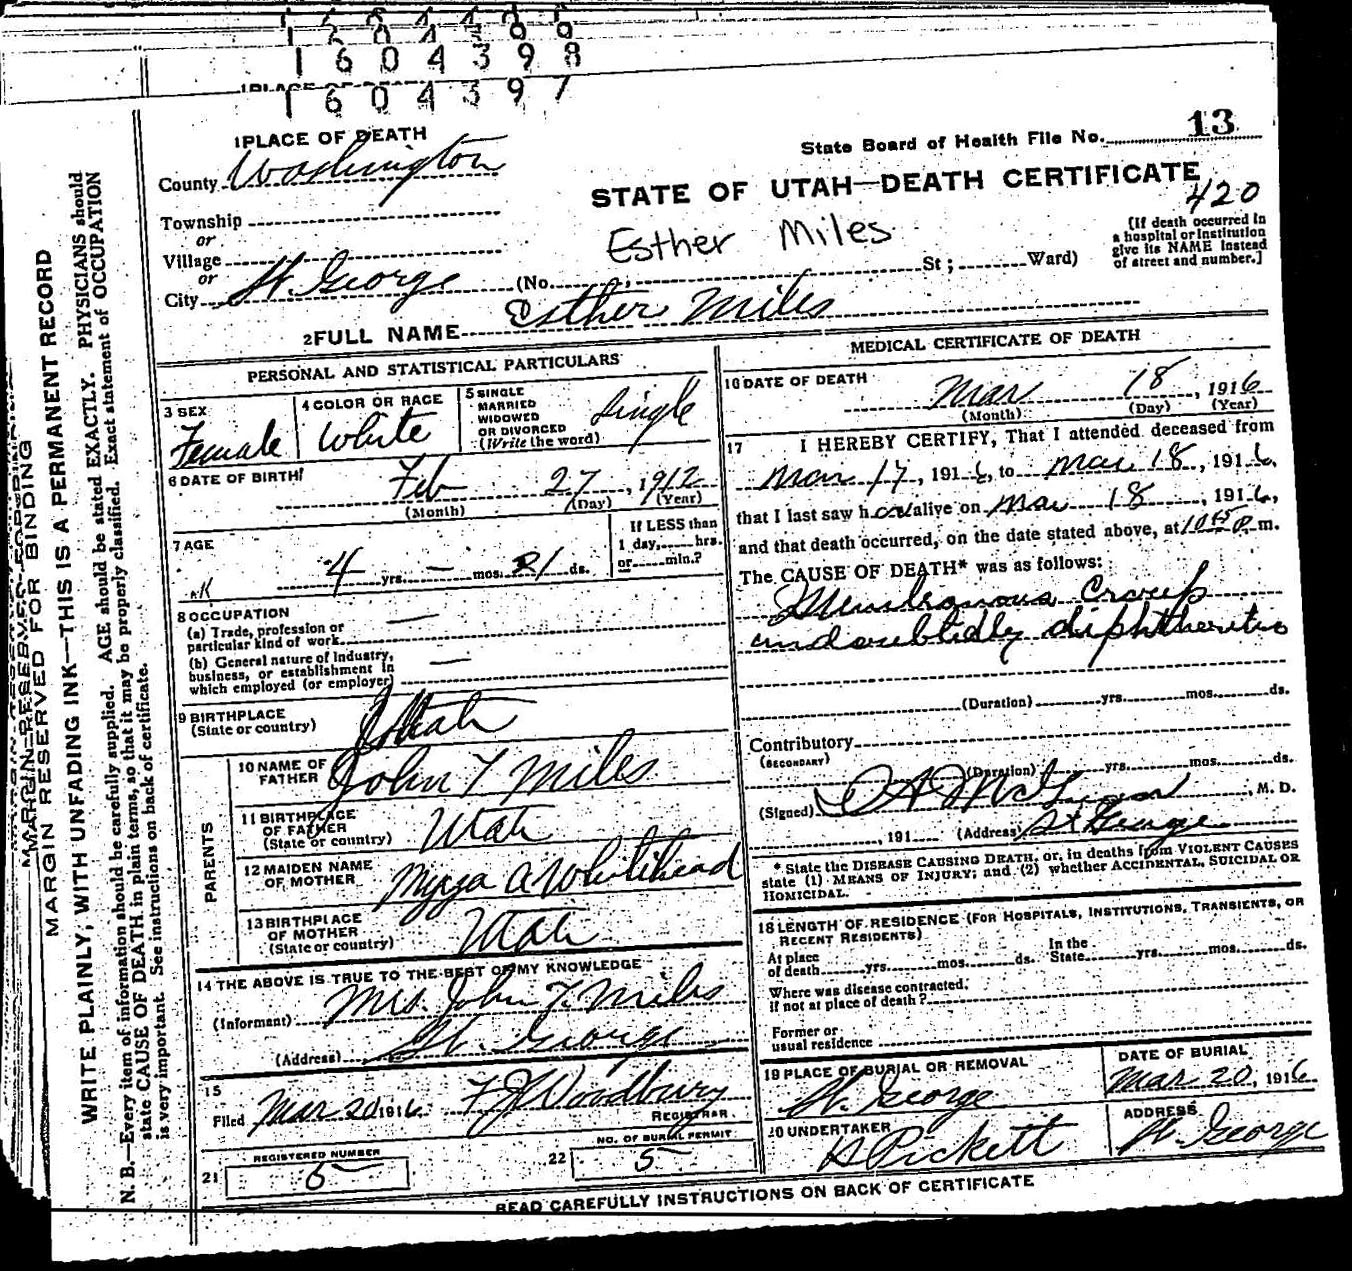 1 6 0 4 3 9 8
1 6 0 4 3 9 7
1 PLACE OF DEATH
County Washington
Township
or
Village
or
City St. George
State Board of Health File No. 13
STATE OF UTAH—DEATH CERTIFICATE
420
Esther Miles
(No. St; Ward)
(If death occurred in
a hospital or institution
give its NAME instead
of street and number.]
2 FULL NAME Esther Miles
PERSONAL AND STATISTICAL PARTICULARS
3 SEX
Female
4 COLOR OR RACE
White
5 SINGLE
MARRIED
WIDOWED
OR DIVORCED
(Write the word)
Single
6 DATE OF BIRTH
Feb 27, 1912
(Month) (Day) (Year)
7 AGE
4 yrs. — mos. 21 ds.
If LESS than
1 day, hrs.
or min.?
8 OCCUPATION
(a) Trade, profession or
particular kind of work —
(b) General nature of industry,
business, or establishment in
which employed (or employer) —
9 BIRTHPLACE
(State or country) Utah
PARENTS
10 NAME OF
FATHER John T Miles
11 BIRTHPLACE
OF FATHER
(State or country) Utah
12 MAIDEN NAME
OF MOTHER A Whitehead
13 BIRTHPLACE
OF MOTHER
(State or country) Utah
14 THE ABOVE IS TRUE TO THE BEST OF MY KNOWLEDGE
(Informant) Mrs. John T. Miles
(Address) St. George
15
Filed Mar 20 1916 F J Woodbury
REGISTRAR
21 REGISTERED NUMBER
5
22 NO. OF BURIAL PERMIT
5
MEDICAL CERTIFICATE OF DEATH
16 DATE OF DEATH
Mar 18, 1916
(Month) (Day) (Year)
17 I HEREBY CERTIFY, That I attended deceased from
Mar 17, 1916, to Mar 18, 1916,
that I last saw her alive on Mar 18, 1916,
and that death occurred, on the date stated above, at 10 45 P m.
The CAUSE OF DEATH* was as follows:
Membranous Croup
undoubtedly diphtheretic
(Duration) yrs. mos. ds.
Contributory
(SECONDARY)
(Duration) yrs. mos. ds.
(Signed) M. D.
, 191 (Address) St George
* State the DISEASE CAUSING DEATH, or, in deaths from VIOLENT CAUSES
state (1) MEANS OF INJURY; and (2) whether ACCIDENTAL, SUICIDAL OR
HOMICIDAL.
18 LENGTH OF RESIDENCE (FOR HOSPITALS, INSTITUTIONS, TRANSIENTS, OR
RECENT RESIDENTS)
At place
of death yrs. mos. ds.
In the
State yrs. mos. ds.
Where was disease contracted,
if not at place of death?
Former or
usual residence
19 PLACE OF BURIAL OR REMOVAL
St. George
DATE OF BURIAL
Mar 20, 1916
20 UNDERTAKER
Pickett
ADDRESS
St George
READ CAREFULLY INSTRUCTIONS ON BACK OF CERTIFICATE
MARGIN RESERVED FOR BINDING
WRITE PLAINLY, WITH UNFADING INK—THIS IS A PERMANENT RECORD
N. B.—Every item of information should be carefully supplied. AGE should be stated EXACTLY. PHYSICIANS should
state CAUSE OF DEATH in plain terms, so that it may be properly classified. Exact statement of OCCUPATION
is very important. See instructions on back of certificate.